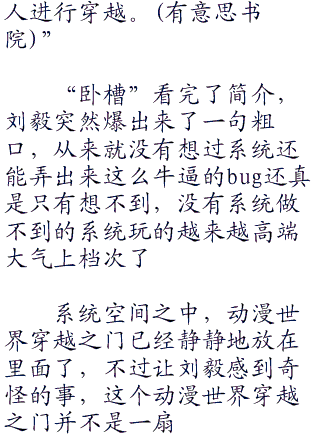 人进行穿越。(有意思书
院)”
“卧槽”看完了简介，
刘毅突然爆出来了一句粗
口，从来就没有想过系统还
能弄出来这么牛逼的bug还真
是只有想不到，没有系统做
不到的系统玩的越来越高端
大气上档次了
系统空间之中，动漫世
界穿越之门已经静静地放在
里面了，不过让刘毅感到奇
怪的事，这个动漫世界穿越
之门并不是一扇